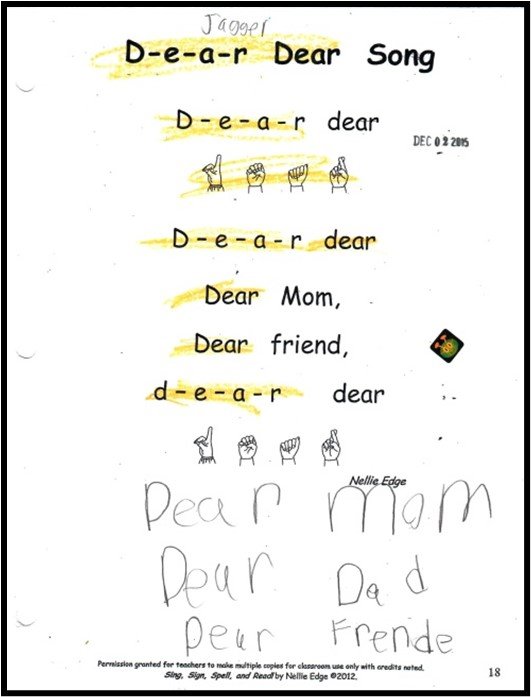 Jagger
D-e-a-r Dear Song
D - e - a - r dear
DEC 02 2015
D - e - a - r dear
Dear Mom,
Dear friend,
d - e - a - r dear
Nellie Edge
Dear mom
Dear Dad
Dear Frende
Permission granted for teachers to make multiple copies for classroom use only with credits noted.
Sing, Sign, Spell, and Read! by Nellie Edge ©2012.
18